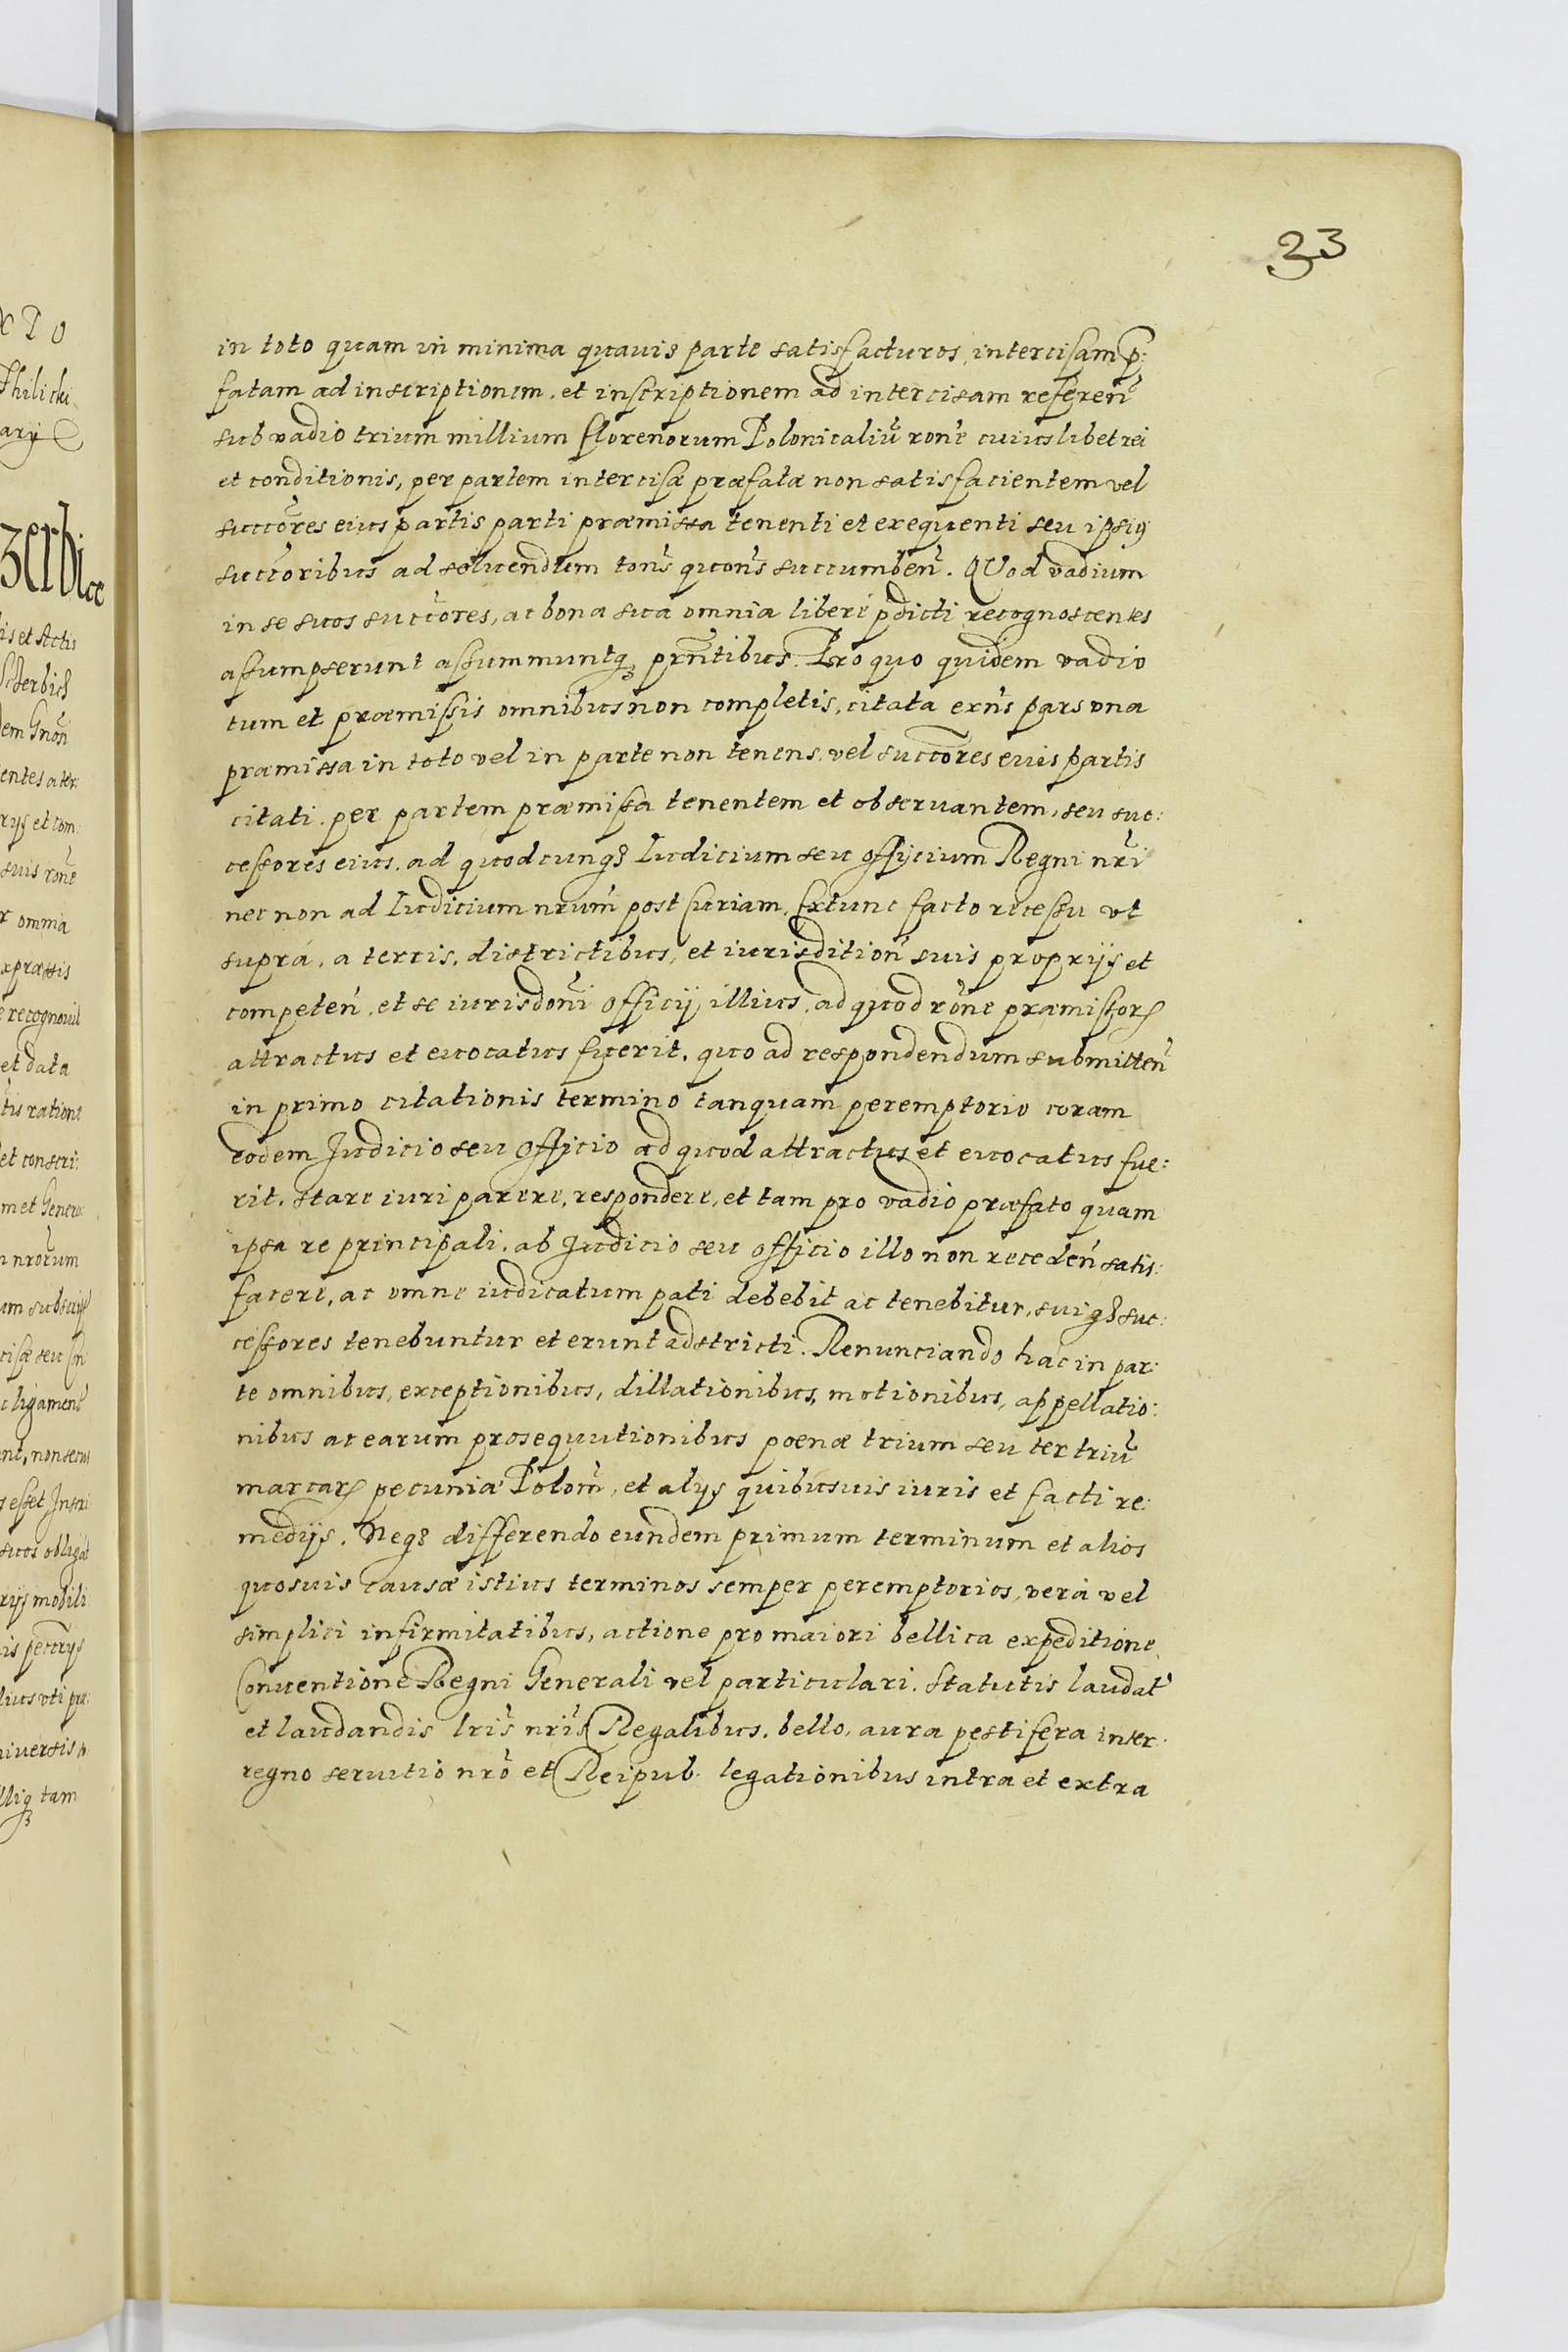 33
in toto quam in minima quauis parte satisfacturos, intercisam p̄:
fatam ad inscriptionem, et inscriptionem ad intercisam referen̄
sub vadio trium millium florenorum Polonicaliū rōne cuiuslibet rei
et conditionis, per partem intercisæ præfatæ non satisfacientem vel
succōres eius partis parti præmissa tenenti et exequenti seu ipsiꝰ
succōribus ad soluendum tōns qūcons succumben̄. QVod vadium
in se suos succōres, ac bona sua omnia liberè p̄dicti recognoscentes
aßumpserunt aßummuntqꝫ prn̄tibus. Pro quo quidem vadio
tum et præmißis omnibus non completis, citata exn̄s pars vna
præmissa in toto vel in parte non tenens, vel succōres eius partis
citati, per partem præmißa tenentem et obseruantem, seu suc:
ceßores eius, ad quodcunqꝫ Iudicium seu officium Regni nr̄i
nec non ad Iudicium nrūm post Curiam, Extunc facto receßu vt
suprá, a terris, districtibus, et iurisdition̄ suis proprijs et
competen̄, et se iurisdon̄i officij illius, ad quod rōne præmißorꝝ
attractus et euocatus fuerit, quo ad respondendum submitten̄
in primo citationis termino tanquam peremptorio coram
eodem Judicio seu officio ad quod attractus et euocatus fue:
rit, stare iuri parere, respondere, et tam pro vadio præfato quam
ipsa re principali, ab Judicio seu officio illo non receden̄ satis:
facere, ac omne iudicatum pati debebit ac tenebitur, suiqꝫ suc:
ceßores tenebuntur et erunt adstricti. Renunciando hac in par:
te omnibus, exceptionibus, dillationibus, motionibus, appellatio:
nibus ac earum prosequutionibus poenæ trium seu ter triū
marcarꝝ pecuniæ Polon̄, et alys quibusuis iuris et facti re:
medijs. Neqꝫ differendo eundem primum terminum et alios
quosuis causæ istius terminos semper peremptorios, verà vel
simplici infirmitatibus, actione pro maiori bellica expeditione,
Conuentione Regni Generali vel particulari. Statutis laudat̄
et laudandis lrīs nrīs Regalibus, bello, aura pestifera inter:
regno seruitio nrō et Reipub. legationibus intra et extra